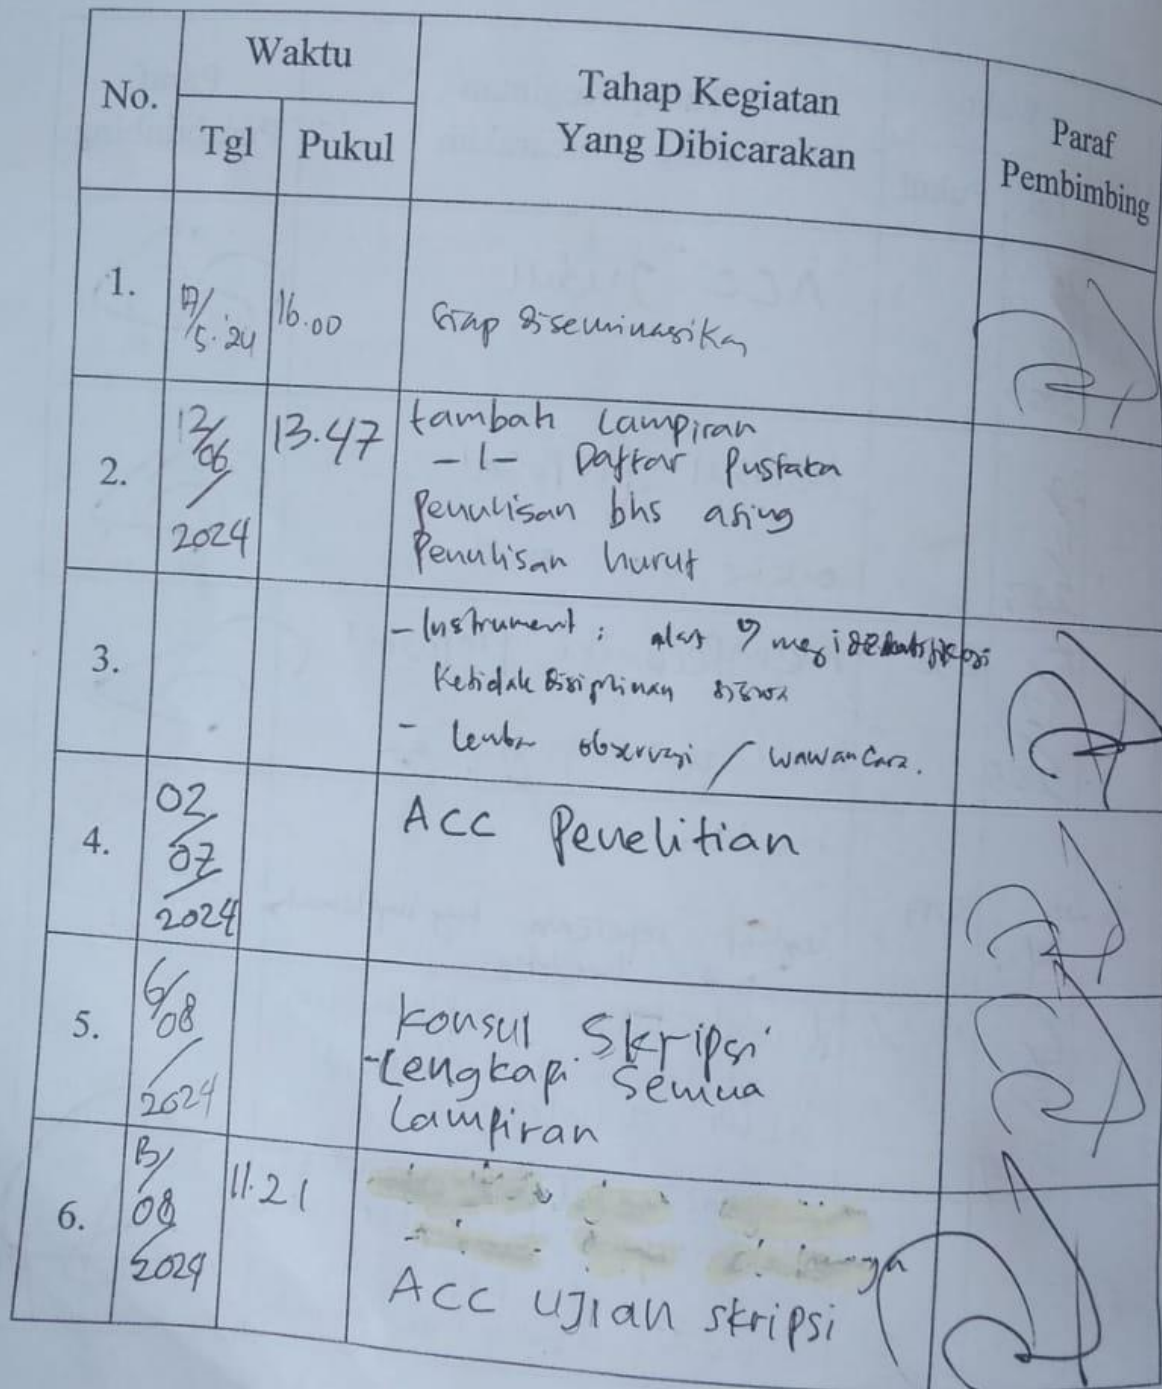 No.
Waktu
Tgl
Pukul
Tahap Kegiatan
Yang Dibicarakan
Paraf
Pembimbing
1.
17/
5.'24
16.00
Siap diseminasikan
2.
12/
06
/
2024
13.47
tambah Lampiran
-1- Daftar Pustaka
Penulisan bhs asing
Penulisan huruf
3.
- Instrument : alat
Ketidak disiplinan siswa
- observasi / wawancara.
4.
02/
07/
2024
ACC Penelitian
5.
6/
08
/
2024
Konsul Skripsi
-Lengkapi Semua
Lampiran
6.
08
/2024
11.21
ACC UJIAN skripsi